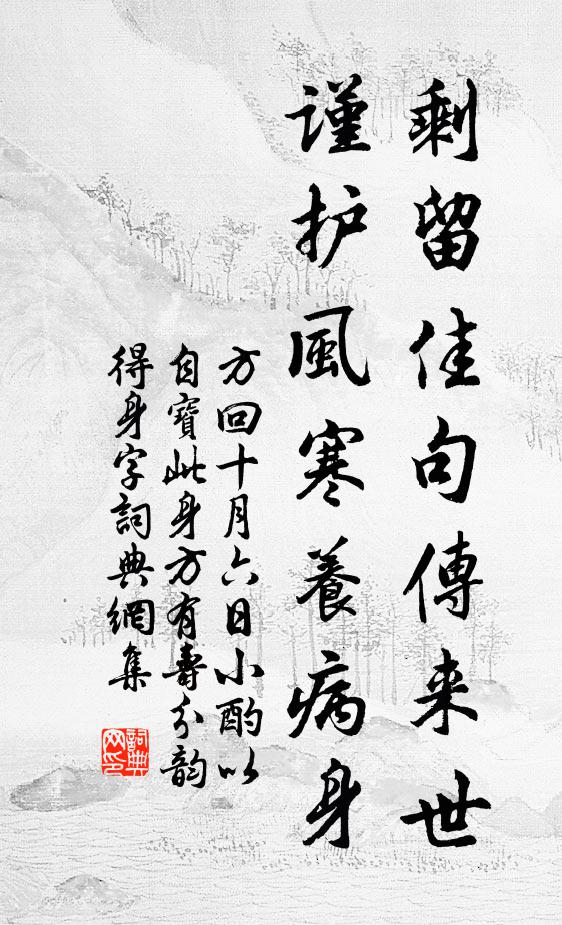 剩留佳句傳来世
謹护風寒養病身
方回十月六日小酌以
自寶此身方有壽分韵
得身字詞典網集
詞典网印